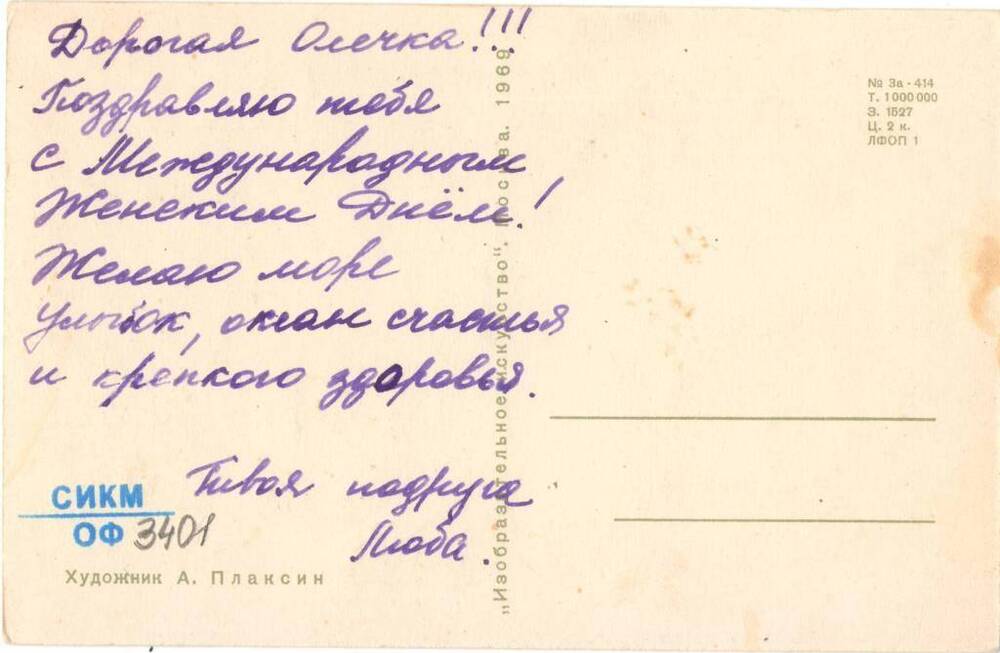 Дорогая Олечка!!!
Поздравляю тебя
с Международным
Женским Днём!
Желаю море
улыбок, океан счастья
и крепкого здоровья.
Твоя подруга
Люба.
СИКМ
ОФ 3401
Художник А. Плаксин
„Изобразительное искусство“. Москва. 1969
№ 3а-414
Т. 1 000 000
З. 1527
Ц. 2 к.
ЛФОП 1